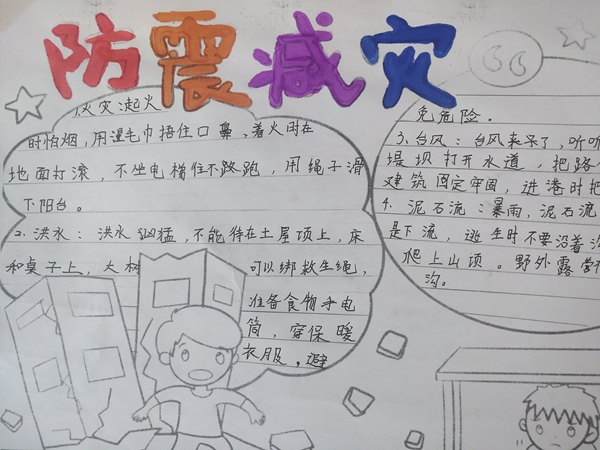 防震减灾
火灾:起火
时怕烟,用湿毛巾捂住口鼻,着火时在
地面打滚,不坐电梯往不跑,用绳子滑
下阳台。
2. 洪水:洪水凶猛,不能待在土屋顶上,床
和桌子上,大树
可以绑救生绳,
准备食物手电
筒,穿保暖
衣服,避
免危险.
3、台风:台风来了,听听
堤坝打开水道,把路
建筑固定牢固,进港时把
4、泥石流:暴雨,泥石流
是下流,逃生时不要沿着
爬上山顶。野外露营
沟。